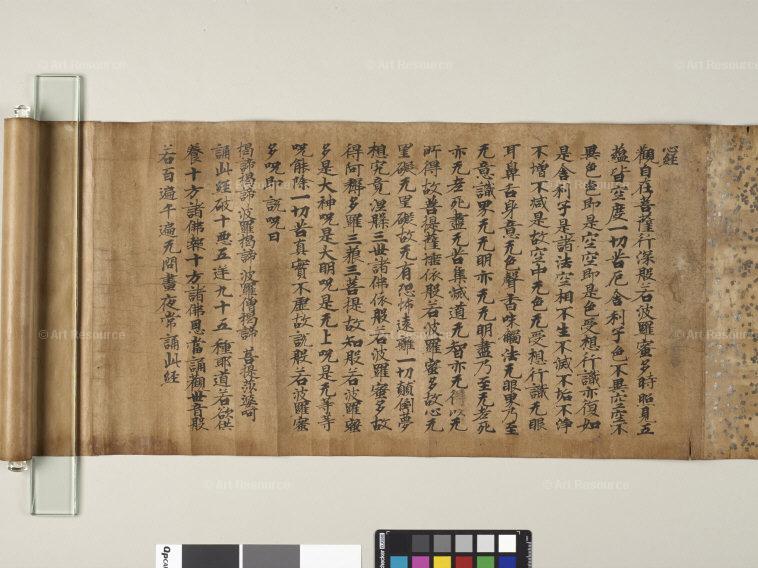 心經
觀自在菩薩行深般若波羅蜜多時照見五
蘊皆空度一切苦厄舍利子色不異空空不
異色色即是空空即是色受想行識亦復如
是舍利子是諸法空相不生不滅不垢不淨
不增不减是故空中无色无受想行識无眼
耳鼻舌身意无色聲香味觸法无眼界乃至
无意識界无无明亦无无明盡乃至无老死
亦无老死盡无苦集滅道无智亦无得以无
所得故菩提薩埵依般若波羅蜜多故心无
罣礙无罣礙故无有恐怖遠離一切顛倒夢
想究竟涅槃三世諸佛依般若波羅蜜多故
得阿耨多羅三藐三菩提故知般若波羅蜜
多是大神呪是大明呪是无上呪是无等等
呪能除一切苦真實不虛故說般若波羅蜜
多呪即說呪曰
揭諦揭諦 波羅揭諦 波羅僧揭諦 菩提莎婆呵
誦此經破十惡五逆九十五種耶道若欲供
養十方諸佛報十方諸佛恩當誦觀世音般
若百遍千遍无間晝夜常誦此經
© Art Resource
© Art Resource
© Art Resource
© Art Resource
© Art Resource
© Art Resource
© Art Resource
© Art Resource
© Art Resource